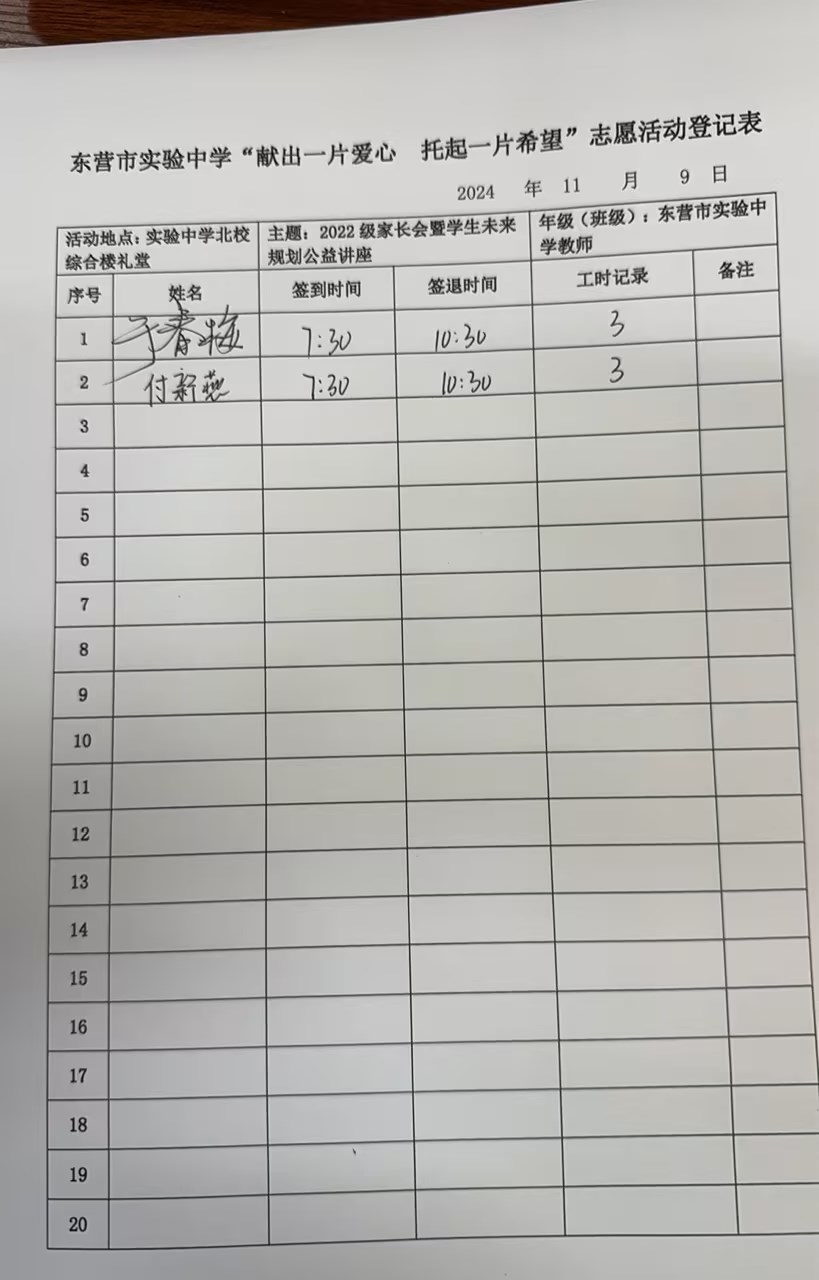 东营市实验中学“献出一片爱心 托起一片希望”志愿活动登记表
2024 年 11 月 9 日
活动地点：实验中学北校综合楼礼堂 主题：2022 级家长会暨学生未来规划公益讲座 年级（班级）：东营市实验中学教师
序号 姓名 签到时间 签退时间 工时记录 备注
1 于春梅 7:30 10:30 3
2 付新燕 7:30 10:30 3
3
4
5
6
7
8
9
10
11
12
13
14
15
16
17
18
19
20